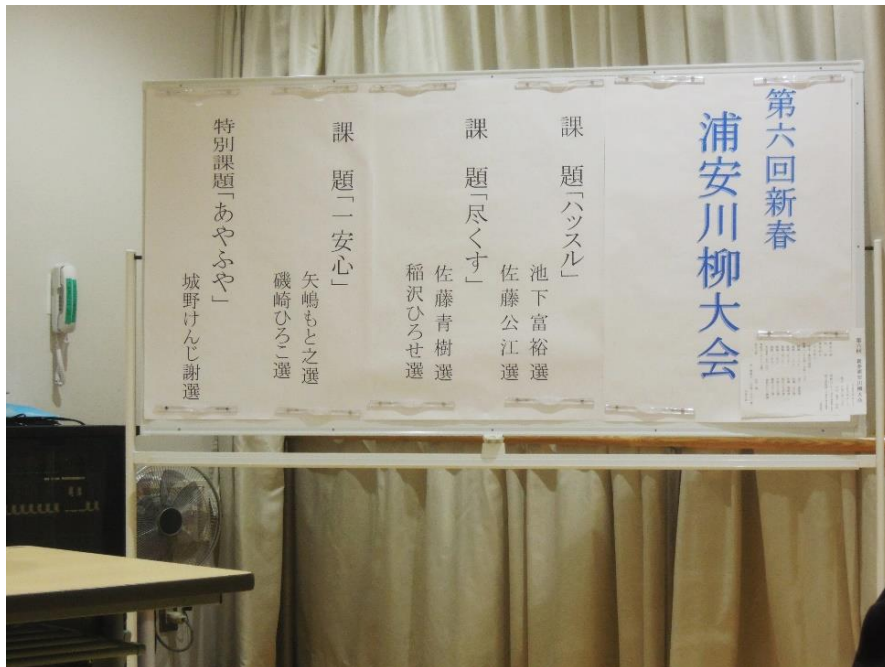 第六回新春
浦安川柳大会
課　題「ハッスル」
池下富裕選
佐藤公江選
課　題「尽くす」
佐藤青樹選
稲沢ひろせ選
課　題「一安心」
矢嶋もと之選
磯崎ひろこ選
特別課題「あやふや」
城野けんじ謝選